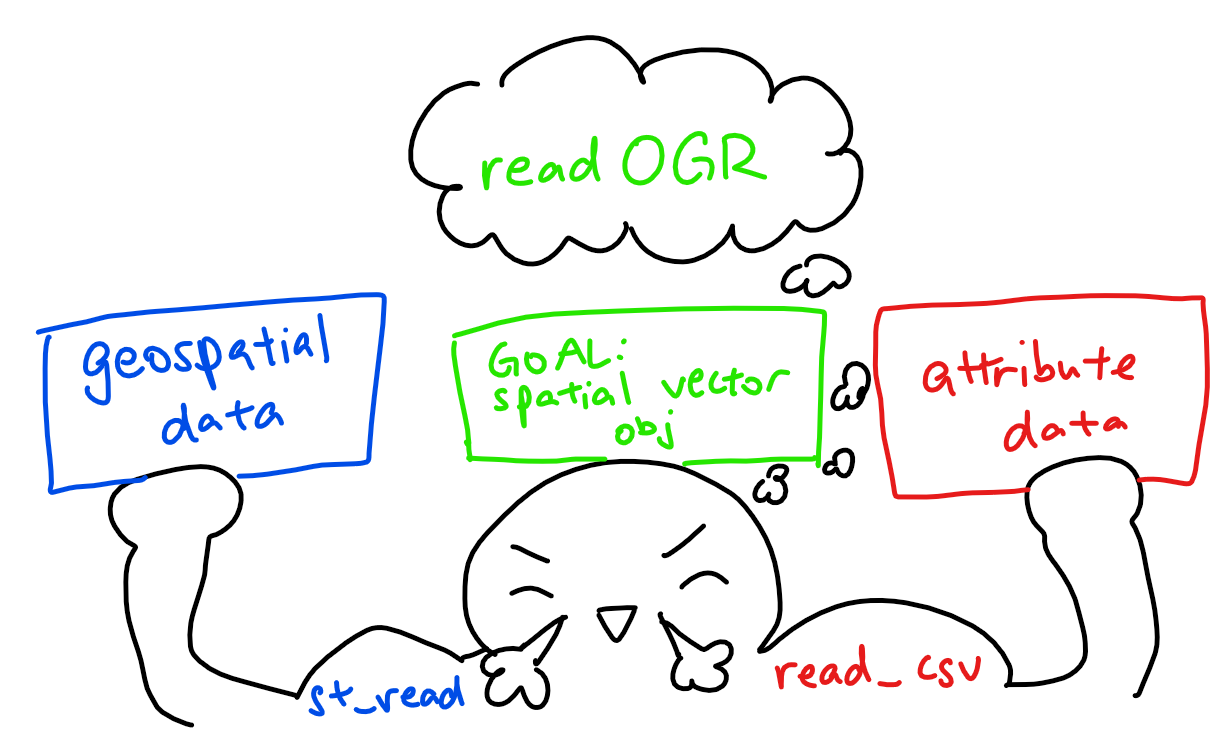 read OGR
geospatial
data
GOAL:
spatial vector
obj
attribute
data
st_read
read_csv